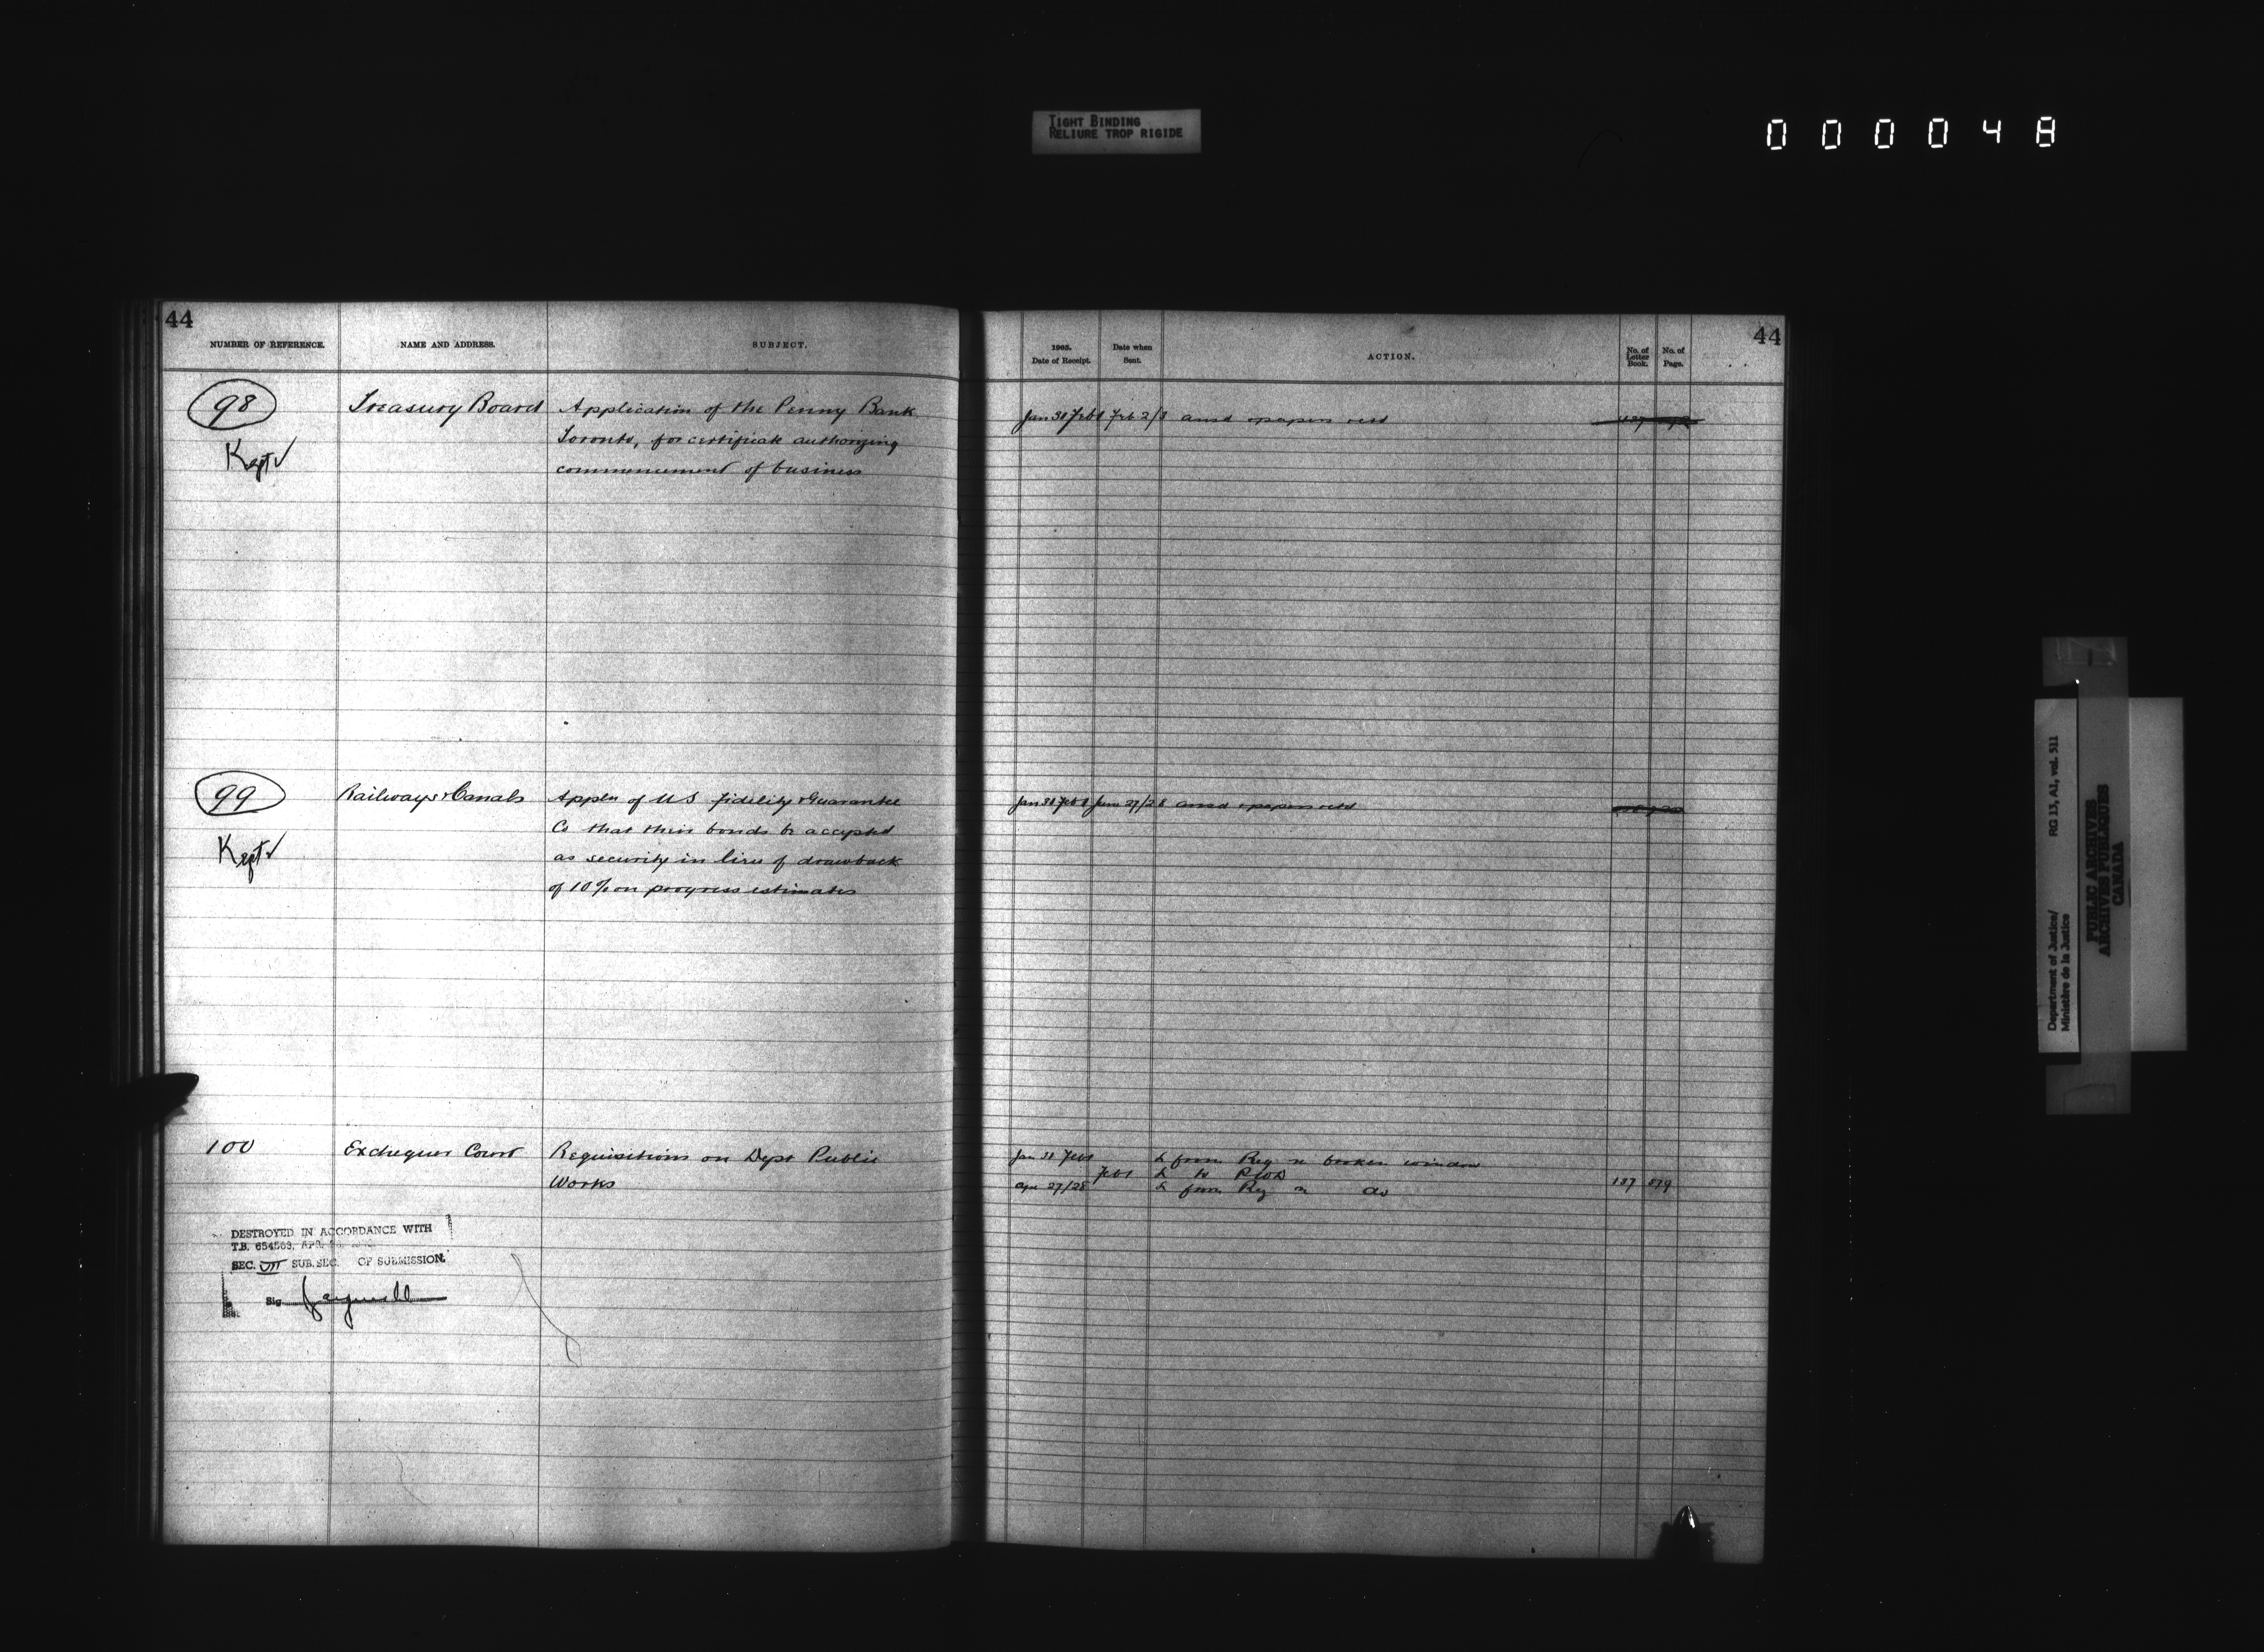 TIGHT BINDING
RELIURE TROP RIGIDE
000048
44
NUMBER OF REFERENCE. NAME AND ADDRESS. SUBJECT.
98 Treasury Board Application of the Penny Bank
Kept ✓ Toronto, for certificate authorizing
commencement of business
99 Railways & Canals Appln of U S Fidelity & Guarantee
Kept ✓ Co that their bonds be accepted
as security in lieu of drawback
of 10% on progress estimates
100 Exchequer Court Requisitions on Dept Public
Works
DESTROYED IN ACCORDANCE WITH
T.B. 654563, APR.
SEC. VII SUB. SEC. OF SUBMISSION.
Sig.
44
1905. Date of Receipt. Date when Sent. ACTION. No. of Letter Book. No. of Page.
Jan 31 Feb 1 Feb 2/3 ansd & papers retd
Jan 31 Feb 1 27/28 ansd & papers retd
Jan 31 Feb 1 L from Reg re broken window
Feb 1 L to PWD
Apr 27/28 L from Reg re do 137 579
Department of Justice/ RG 13, A1, vol. 511
Ministère de la Justice
PUBLIC ARCHIVES
ARCHIVES PUBLIQUES
CANADA